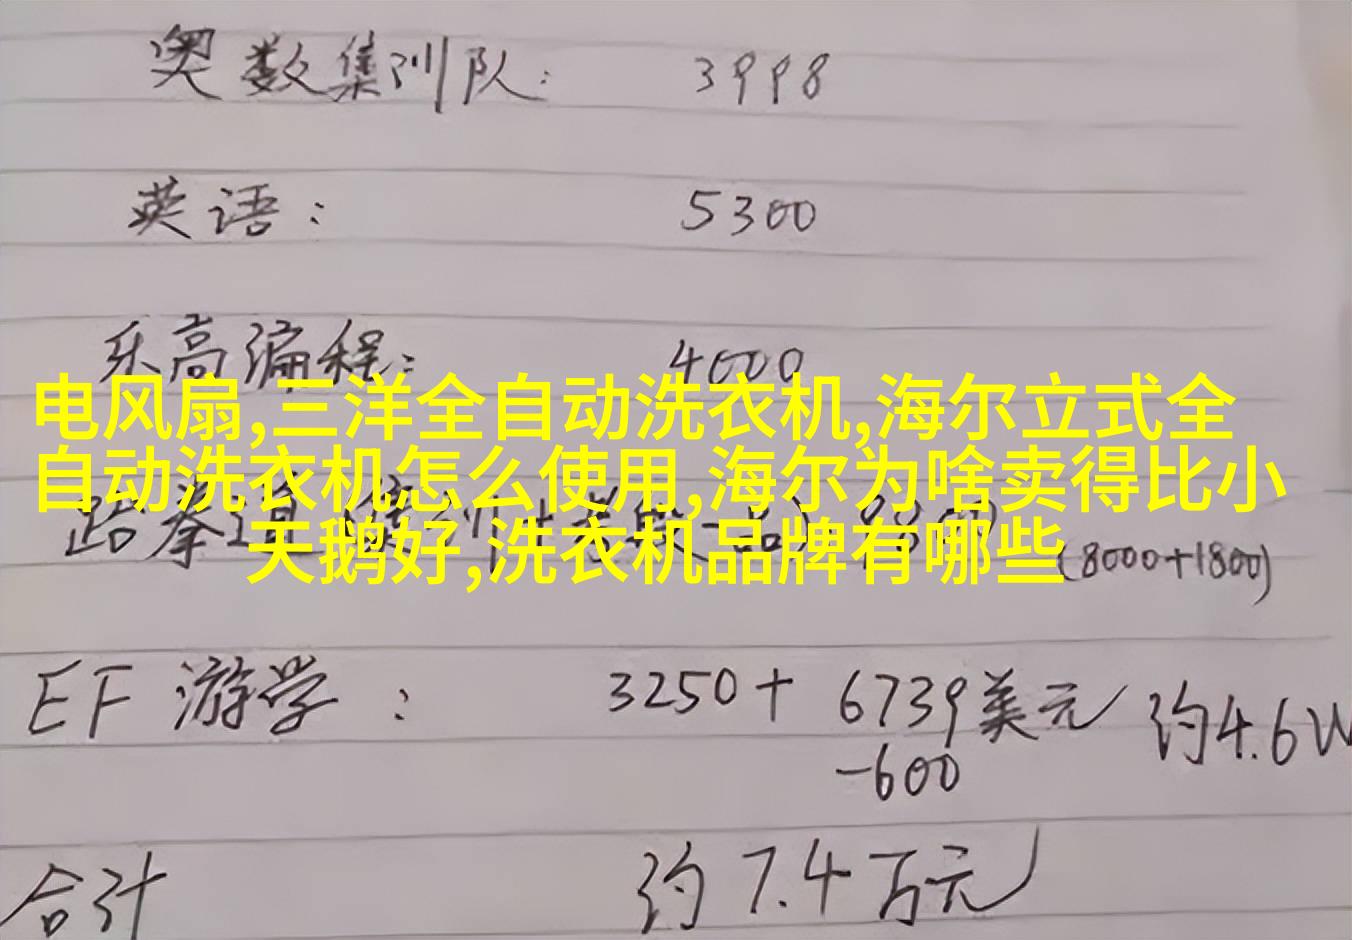 奥数集训队: 3998
英语: 5300
乐高编程: 4000
电风扇,三洋全自动洗衣机,海尔立式全
自动洗衣机怎么使用,海尔为啥卖得比小
天鹅好,洗衣机品牌有哪些
跆拳道 (8000+1800)
EF 游学: 3250+ 6739美元 约4.6W
-600
合计 约7.4万元